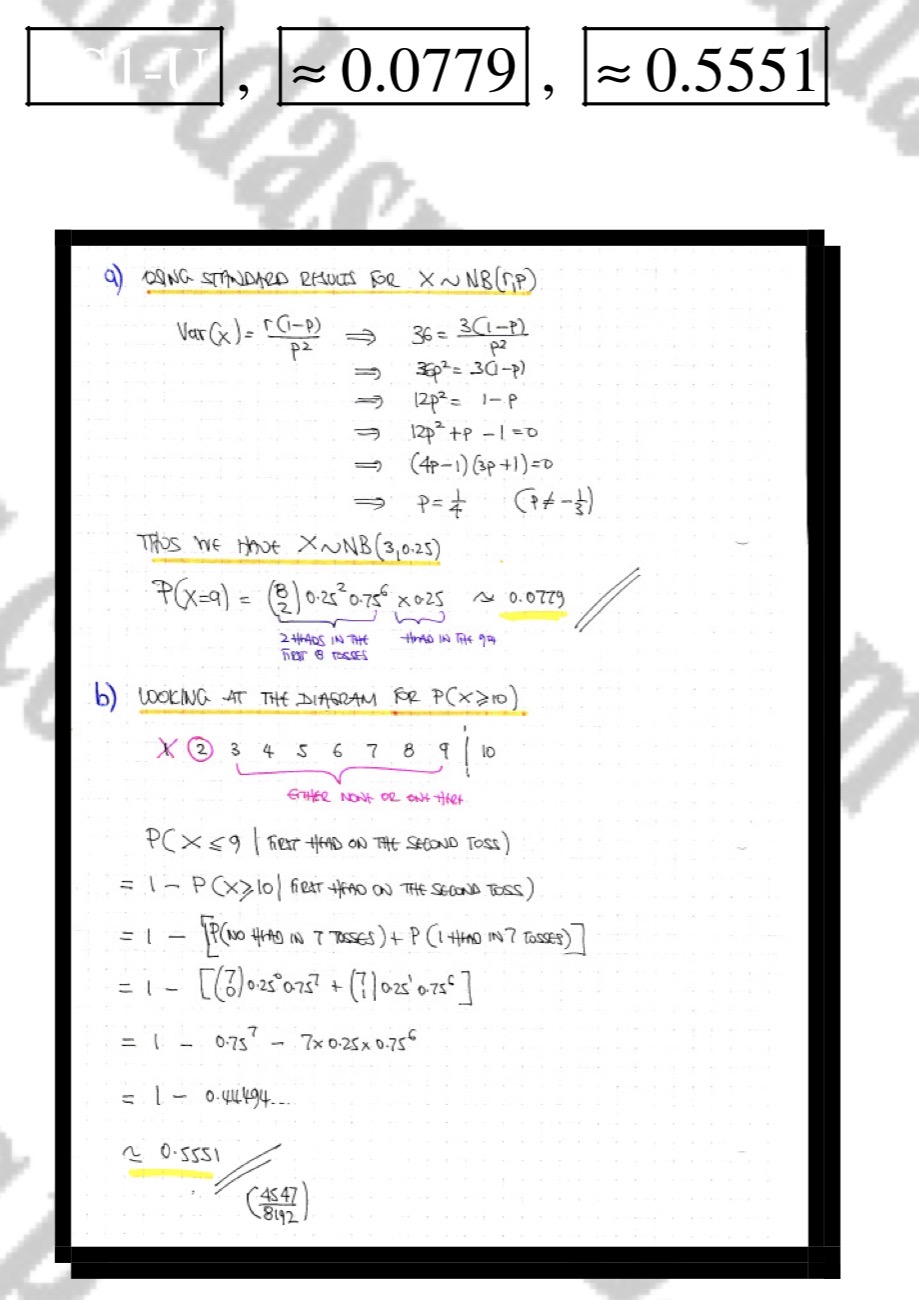 ≈ 0.0779 , ≈ 0.5551
a) USING STANDARD RESULTS FOR X ~ NB(r,p)
Var(X) = r(1-p)/p² ⇒ 36 = 3(1-p)/p²
⇒ 36p² = 3(1-p)
⇒ 12p² = 1-p
⇒ 12p² + p - 1 = 0
⇒ (4p-1)(3p+1) = 0
⇒ p = 1/4 (p ≠ -1/3)
THUS WE HAVE X ~ NB(3,0.25)
P(X=9) = (8 2) 0.25² 0.75⁶ × 0.25 ≈ 0.0779
2 HEADS IN THE FIRST 8 TOSSES
HEAD IN THE 9TH
b) LOOKING AT THE DIAGRAM FOR P(X≥10)
X 2 3 4 5 6 7 8 9 | 10
EITHER NONE OR ONE HERE
P(X ≤ 9 | FIRST HEAD ON THE SECOND TOSS)
= 1 - P(X≥10 | FIRST HEAD ON THE SECOND TOSS)
= 1 - [P(NO HEAD IN 7 TOSSES) + P(1 HEAD IN 7 TOSSES)]
= 1 - [(7 0) 0.25⁰ 0.75⁷ + (7 1) 0.25¹ 0.75⁶]
= 1 - 0.75⁷ - 7×0.25×0.75⁶
= 1 - 0.44494...
≈ 0.5551
(4547/8192)